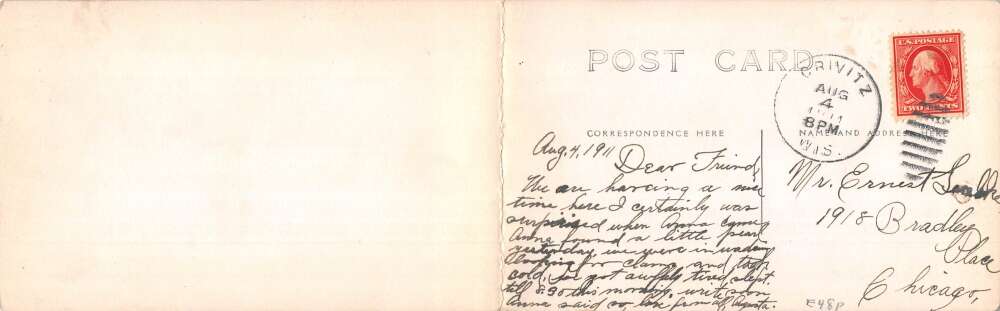 POST CARD
U.S. POSTAGE
TWO CENTS
CRIVITZ
AUG
4
1911
8PM
WIS.
CORRESPONDENCE HERE
NAME AND ADDRESS HERE
Aug. 4, 1911
Dear Friend,
We are having a nice
time here I certainly was
surprised when Anna came
Anna found a little pearl
yesterday, we were in wading
looking for clams and took
cold, we got awfully tired slept
till 8:30 this morning, write soon
Anna said so, love from all, Agusta.
Mr. Ernest
1918 Bradley
Place
Chicago,
E48P